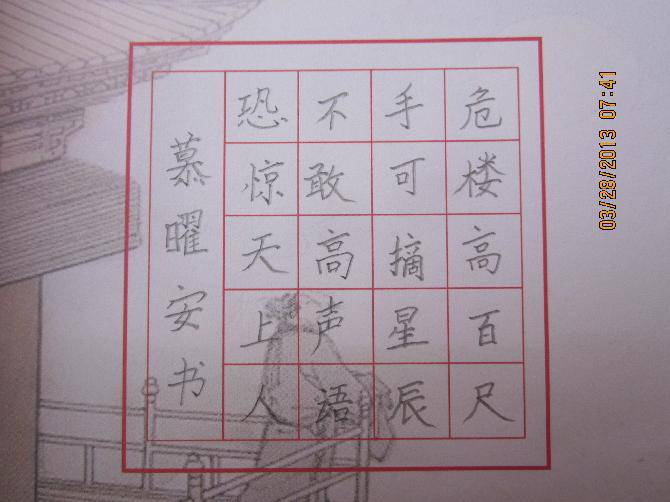 危楼高百尺
手可摘星辰
不敢高声语
恐惊天上人
慕曜安书
03/28/2013 07:41